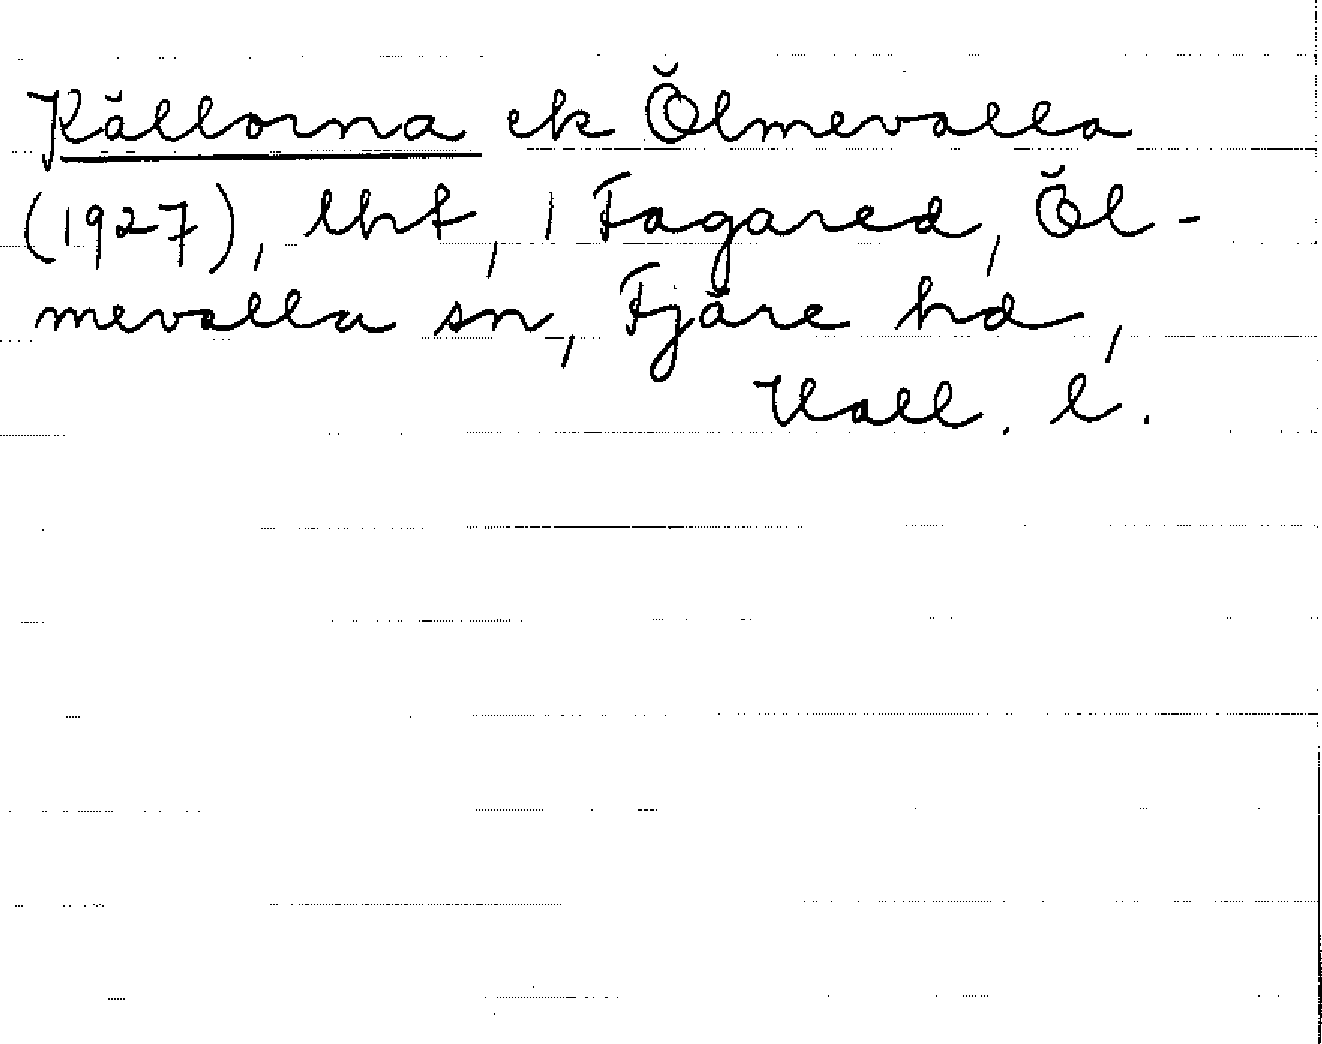 Källorna ek Ölmevalla
(1927), lht, 1 Fagared, Öl-
mevalla sn, Fjäre hd,
Hall. l.